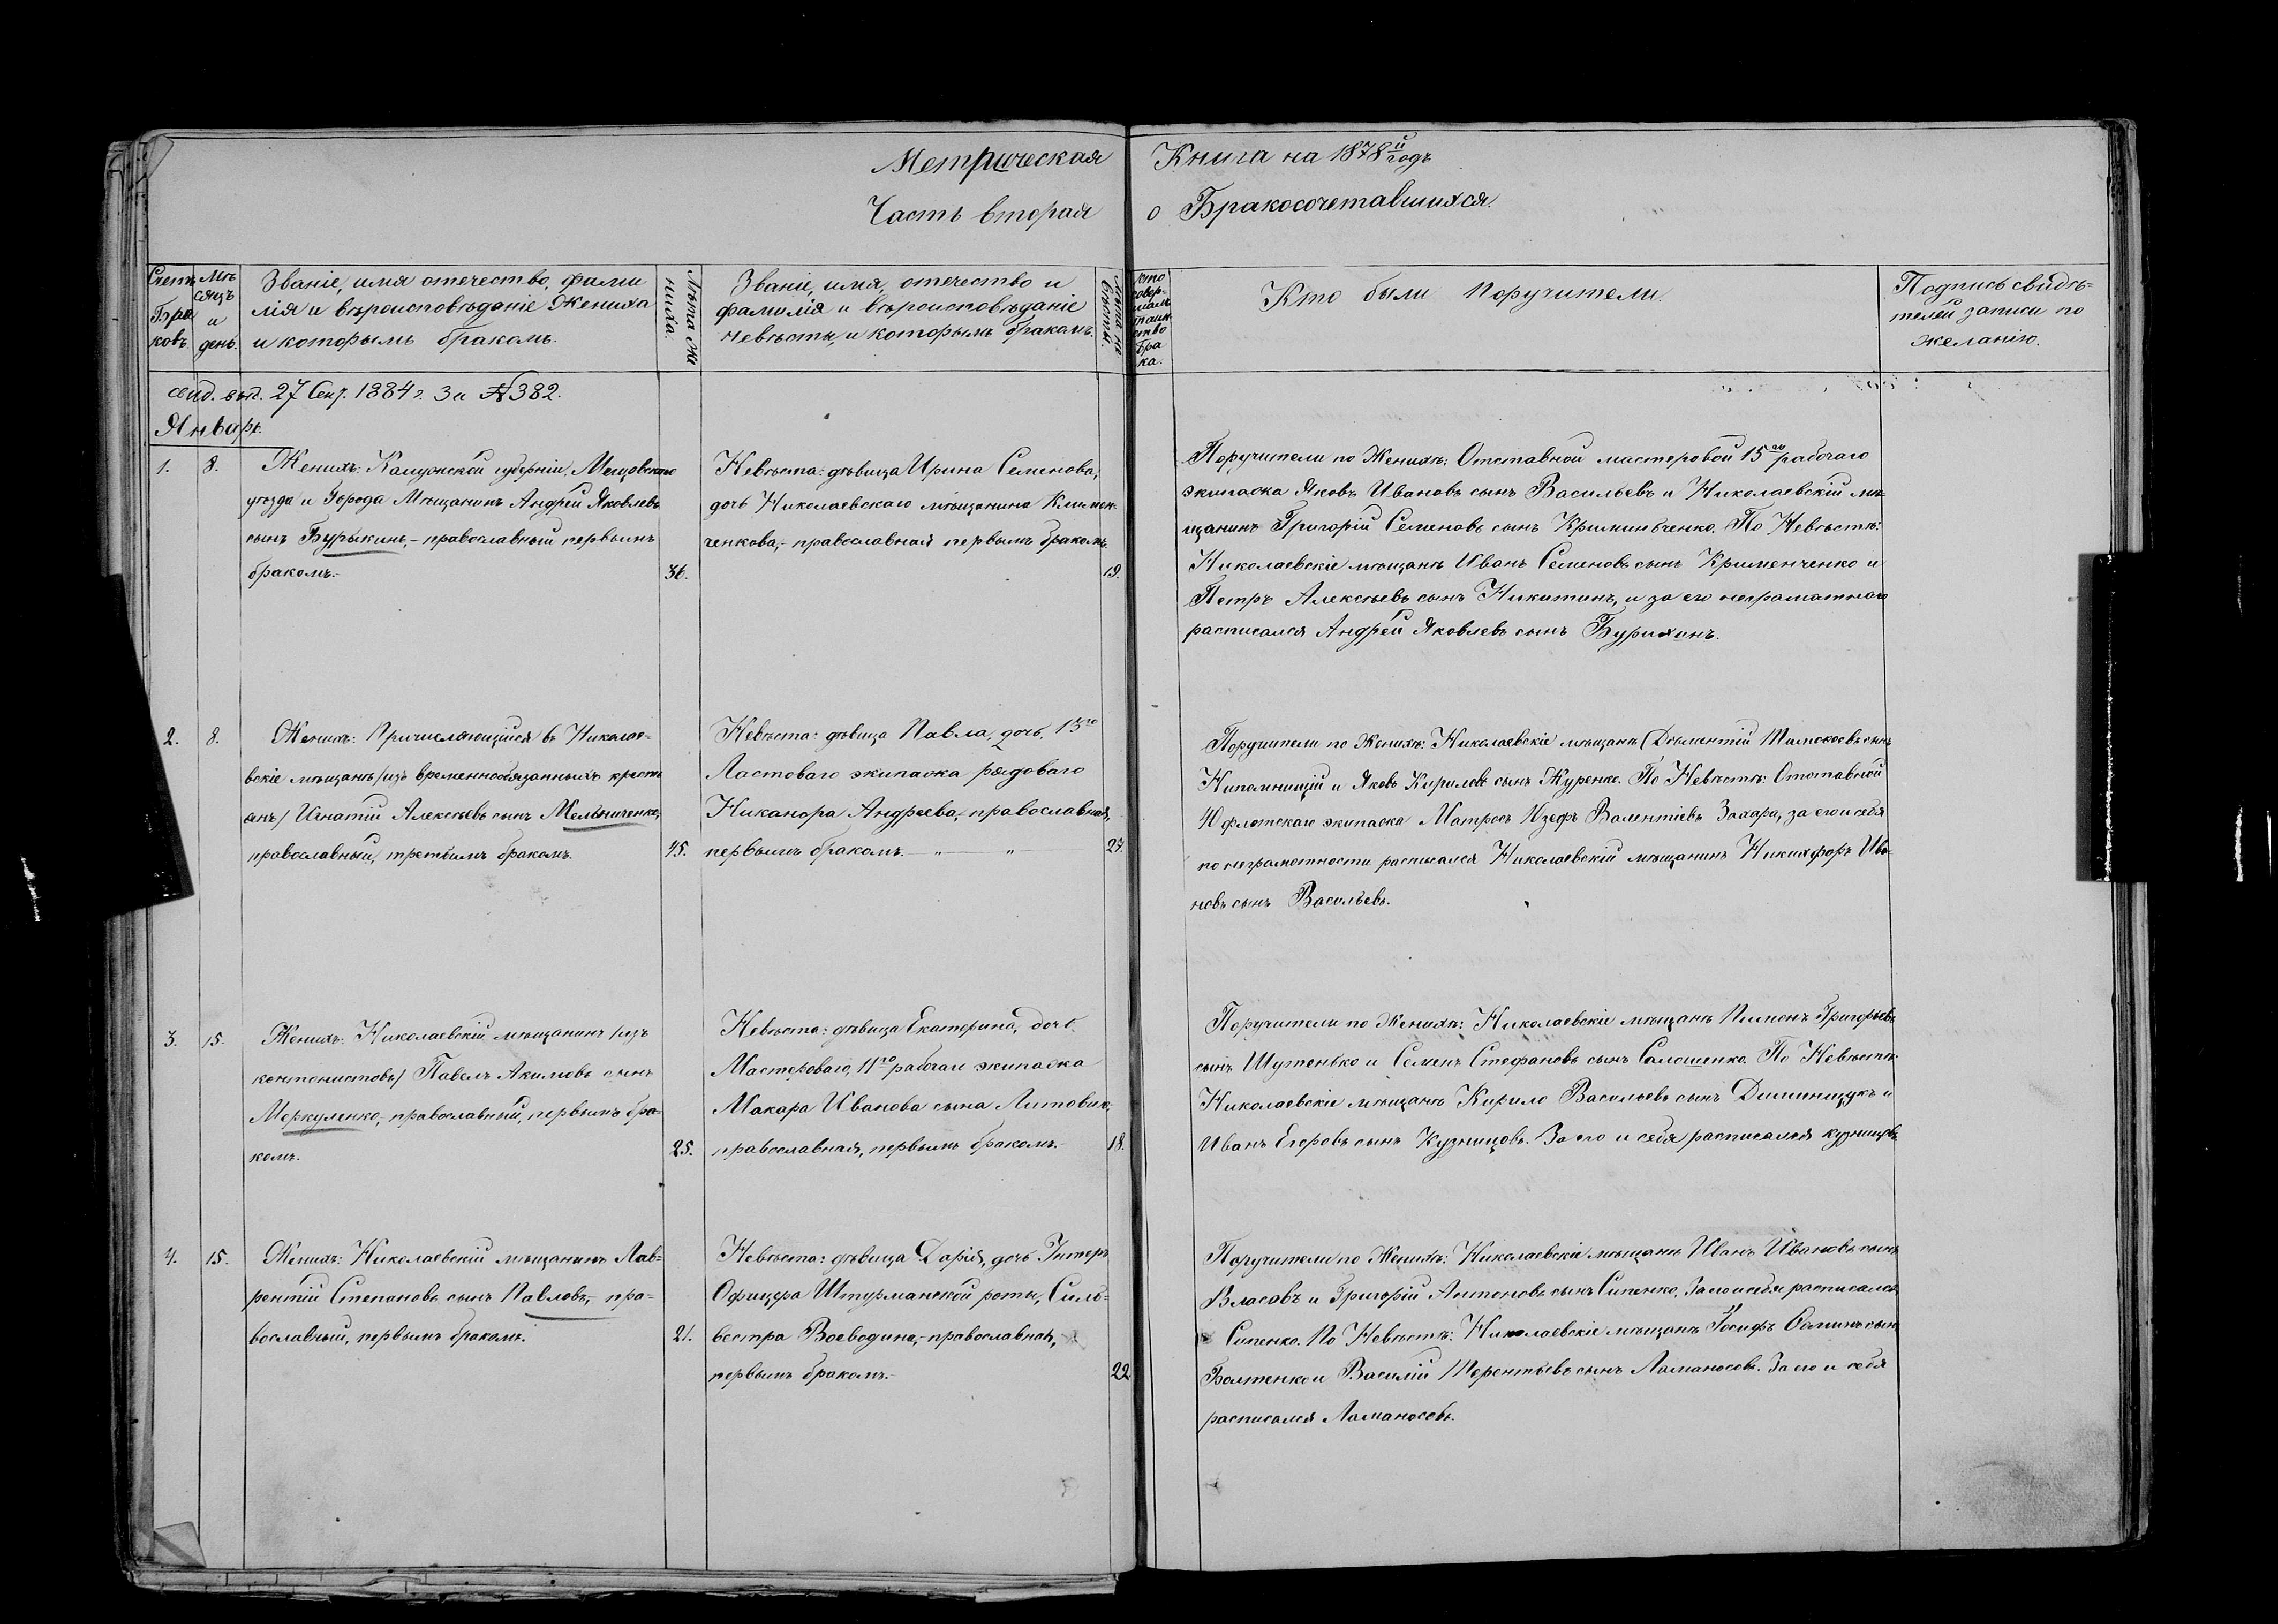 Метрическая Книга на 1878й годъ
Часть вторая о Бракосочетавшихся.
Счетъ Браковъ.
Мѣсяцъ и день.
Званіе, имя отечество, фами
лія и вѣроисповѣданіе Жениха
и которымъ бракомъ.
Лѣта Жениха.
Званіе, имя, отечество и
фамилія и вѣроисповѣданіе
невѣсты, и которымъ бракомъ.
Лѣта невѣсты.
Кто совершалъ таинство брака.
Кто были поручители.
Подпись свидѣ-
телей записи по
желанію.
свид. выд. 27 Сен. 1884 г. За №382.
Январь.
1. 8.
Женихъ: Калужской губерніи, Мещовскаго
уѣзда и Города Мѣщанинъ Андрей Яковлевъ
сынъ Бурыкинъ,- православный первымъ
бракомъ.- 36.
Невѣста: дѣвица Ирина Семенова,
дочь Николаевскаго мѣщанина Климен-
ченкова,- православная первымъ бракомъ.
19.
Поручители по Женихѣ: Отставной мастеровой 15го рабочаго
экипажа Яковъ Ивановъ сынъ Васильевъ и Николаевскій мѣ-
щанинъ Григорій Семеновъ сынъ Криминьченко. По Невѣстѣ:
Николаевскіе мѣщанѣ Иванъ Семеновъ сынъ Крименченко и
Петръ Алексѣевъ сынъ Никитинъ, и за его неграматнаго
расписался Андрей Яковлевъ сынъ Бурихинъ.
2. 8.
Женихъ: Причисляющійся въ Николае-
вскіе мѣщанѣ /изъ временнообязанныхъ кресть
анъ/ Игнатій Алексѣевъ сынъ Мельниченко,
православный, третьимъ бракомъ. 45.
Невѣста: дѣвица Павла, дочь, 13го
Ластоваго экипажа рядоваго
Никанора Андреева,- православная,
первымъ бракомъ. — „ — „ —
Поручители по Женихѣ: Николаевскіе мѣщанѣ Дѣментій сынъ
Нипомнищій и Яковъ Кириловъ сынъ Журенко. По Невѣстѣ: Отставной
40 флотскаго экипажа Матросъ Юзефъ Валентіевъ Захара, за его и себя
по неграмотности расписался Николаевскій мѣщанинъ Никифоръ Ива-
новъ сынъ Васильевъ.
3. 15.
Женихъ: Николаевскій мѣщанинъ /изъ
кантонистовъ/ Павелъ Акимовъ сынъ
Меркуленко,- православный, первымъ бра-
комъ. 25.
Невѣста: дѣвица Екатерина, дочь
Мастероваго, 11го рабочаго экипажа
Макара Иванова сына Литовки,
православная, первымъ бракомъ.- 18.
Поручители по Женихѣ: Николаевскіе мѣщанѣ Пименъ Григорьевъ
сынъ Шутенько и Семенъ Стефановъ сынъ Салошенко. По Невѣстѣ:
Николаевскіе мѣщанѣ Кирило Васильевъ сынъ Диминщукъ и
Иванъ Егоровъ сынъ Кузницовъ. За его и себя расписался кузницовъ.
4. 15.
Женихъ: Николаевскій мѣщанинъ Лав-
рентій Степановъ сынъ Павловъ,- пра-
вославный, первымъ бракомъ. 21.
Невѣста: дѣвица Дарія, дочь Унтеръ
Офицера Штурманской роты, Силь-
вестра Воеводина,- православная,
первымъ бракомъ.- 22
Поручители по Женихѣ: Николаевскіе мѣщанѣ Иванъ Ивановъ сынъ
Власовъ и Григорій Антоновъ сынъ Сипенко. За его и себя расписался
Сипенко. По Невѣстѣ: Николаевскіе мѣщанѣ Іосифъ сынъ
Балтенко и Василій Терентьевъ сынъ Ламаносовъ. За его и себя
расписался Ламаносовъ.